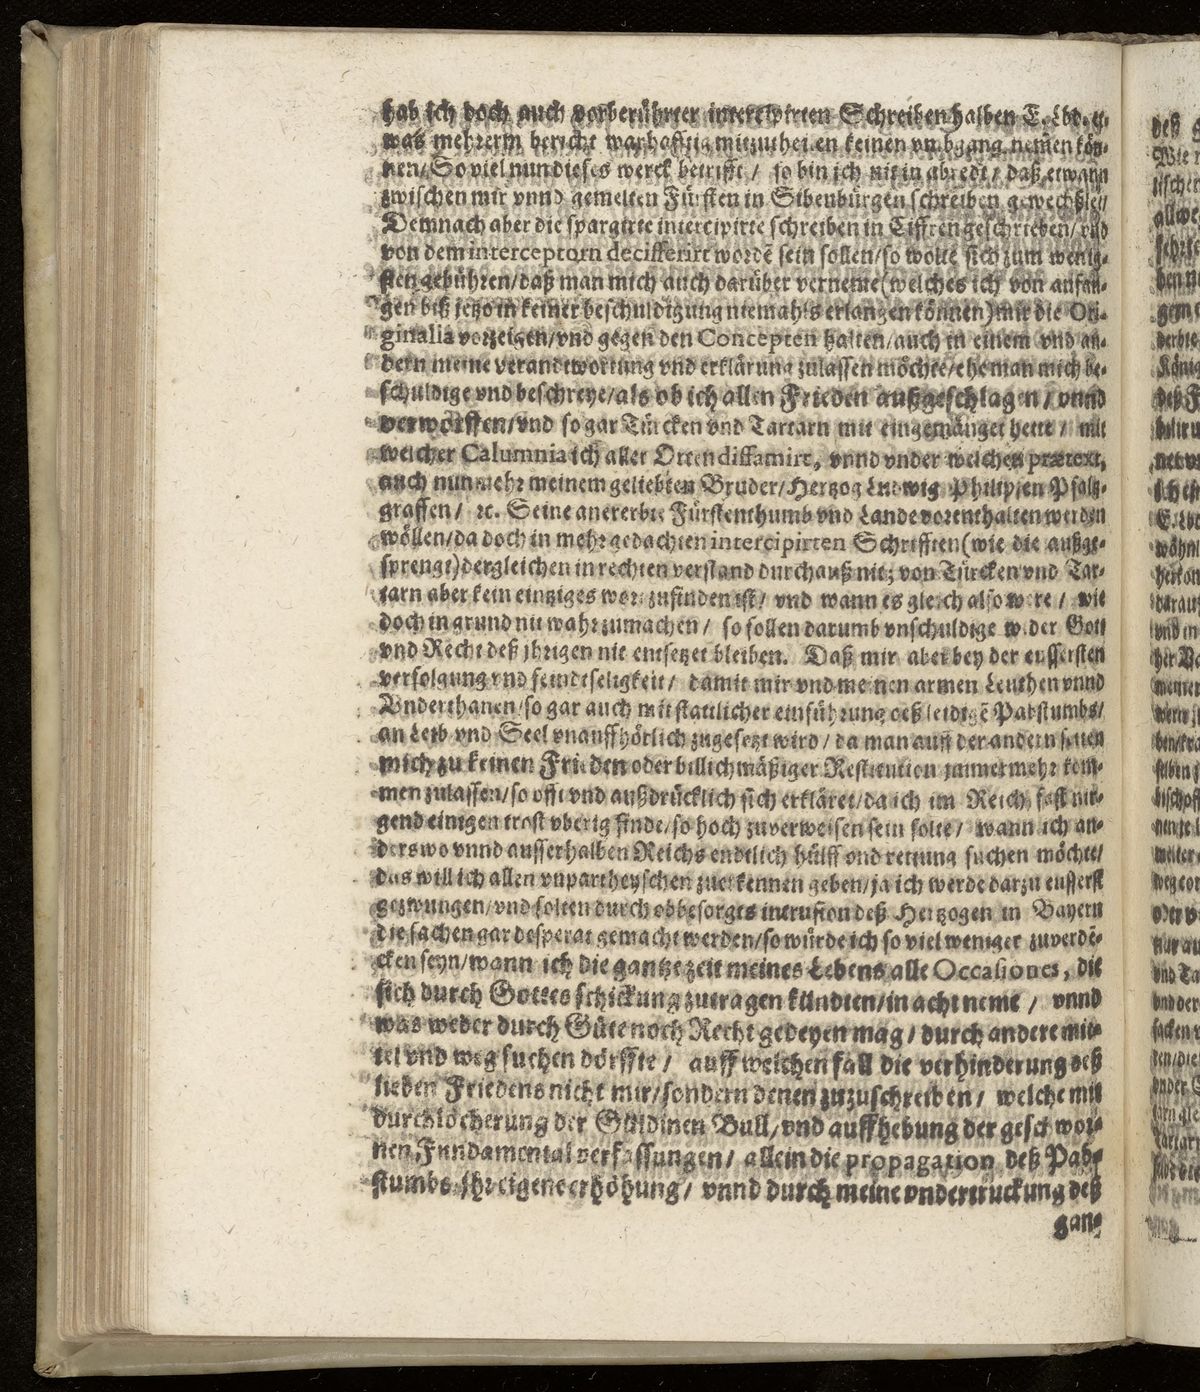 hab ich doch auch vorberührter intercipirten Schreiben halben E. Lbd. et-
was mehrerm bericht warhafftig mitzutheilen keinen vmbgang nemen kön-
nen/ So viel nun dieses werck betrifft / so bin ich nit in abredt / daß etwann
zwischen mir vnnd gemelten Fürsten in Sibenbürgen schreiben gewechßlet/
Demnach aber die spargirte intercipirte schreiben in Ciffren geschrieben/ vnd
von dem interceptorn decifferirt wordē sein sollen/ so wolte sich zum wenig-
sten gebühren/ daß man mich auch darüber verneme (welches ich von anfan-
gen biß jetzo in keiner beschuldigung niemahls erlangen können) mir die Ori-
ginalia vorzeigen/ vnd gegen den Concepten halten/ auch in einem vnd an-
dern meine verandtwortung vnd erklärung zulassen möchte/ ehe man mich be-
schuldige vnd beschreye/ als ob ich allen Frieden außgeschlagen / vnnd
verworffen/ vnd so gar Türcken vnd Tartarn mit eingemänget hette / mit
welcher Calumnia ich aller Orten diffamirt, vnnd vnder welchen prætext,
auch nunmehr meinem geliebten Bruder/ Hertzog Ludwig Philipsen Pfaltz-
graffen / ꝛc. Seine anererbte Fürstenthumb vnd Lande vorenthalten werden
wöllen/ da doch in mehrgedachten intercipirten Schrifften (wie die außge-
sprengt) dergleichen in rechten verstand durchauß nit; von Türcken vnd Tar-
tarn aber kein eintziges wort zufinden ist / vnd wann es gleich also were / wie
doch in grund nit wahr zumachen / so sollen darumb vnschuldige wider Gott
vnd Recht deß jhrigen nit entsetzet bleiben. Daß mir aber bey der eussersten
verfolgung vnd feindtseligkeit / damit mir vnd meinen armen Leuthen vnnd
Vnderthanen/ so gar auch mit stattlicher einführung deß leidigē Pabstumbs/
an Leib vnd Seel vnauffhörlich zugesetzt wird / da man auff der andern seiten
mich zu keinen Frieden oder billichmäßiger Restitution jmmermehr kom-
men zulassen/ so offt vnd außdrücklich sich erkläret/ da ich im Reich fast nir-
gend einigen trost vberig finde/ so hoch zuverweisen sein solte / wann ich an-
derswo vnnd ausserhalben Reichs endtlich hülff vnd rettung suchen möchte/
das will ich allen vnpartheyschen zuerkennen geben/ ja ich werde darzu eusserst
gezwungen/ vnd solten durch obbesorgts intrusion deß Hertzogen in Bayern
die sachen gar desperat gemacht werden/ so würde ich so viel weniger zuverdē-
cken seyn/ wann ich die gantze zeit meines Lebens alle Occasiones, die
sich durch Gottes schickung zutragen kündten/ in acht neme / vnnd
was weder durch Güte noch Recht gedeyen mag / durch andere mit-
tel vnd weg suchen dörffte / auff welchen fall die verhinderung deß
lieben Friedens nicht mir/ sondern denen zuzuschreiben / welche mit
durchlöcherung der Güldinen Bull/ vnd auffhebung der geschwor-
nen Fundamental verfassungen / allein die propagation deß Pab-
stumbs jhr eigene erhöhung / vnnd durch meine vndertruckung deß
gan-